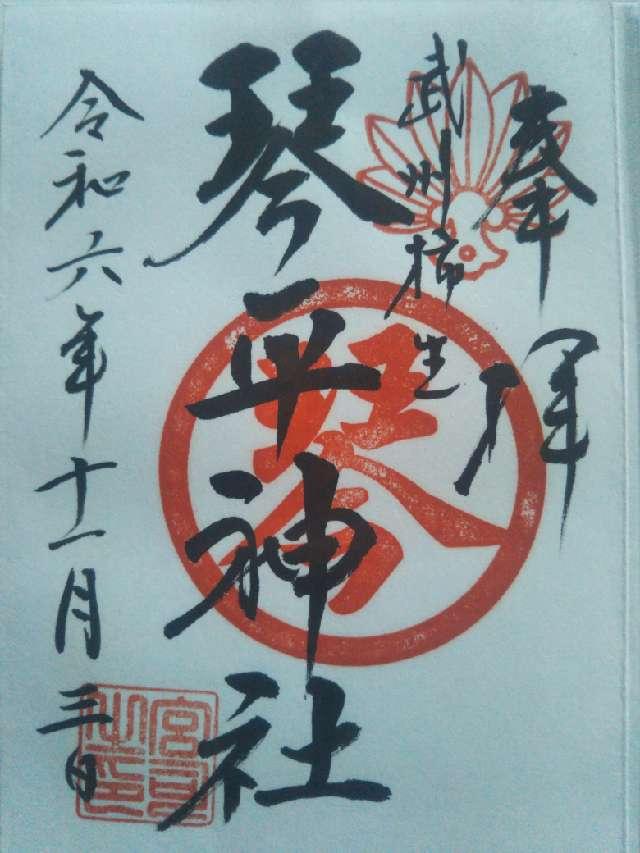 奉拝
武州柿生
琴平神社
令和六年十一月三日
琴
宮司之印